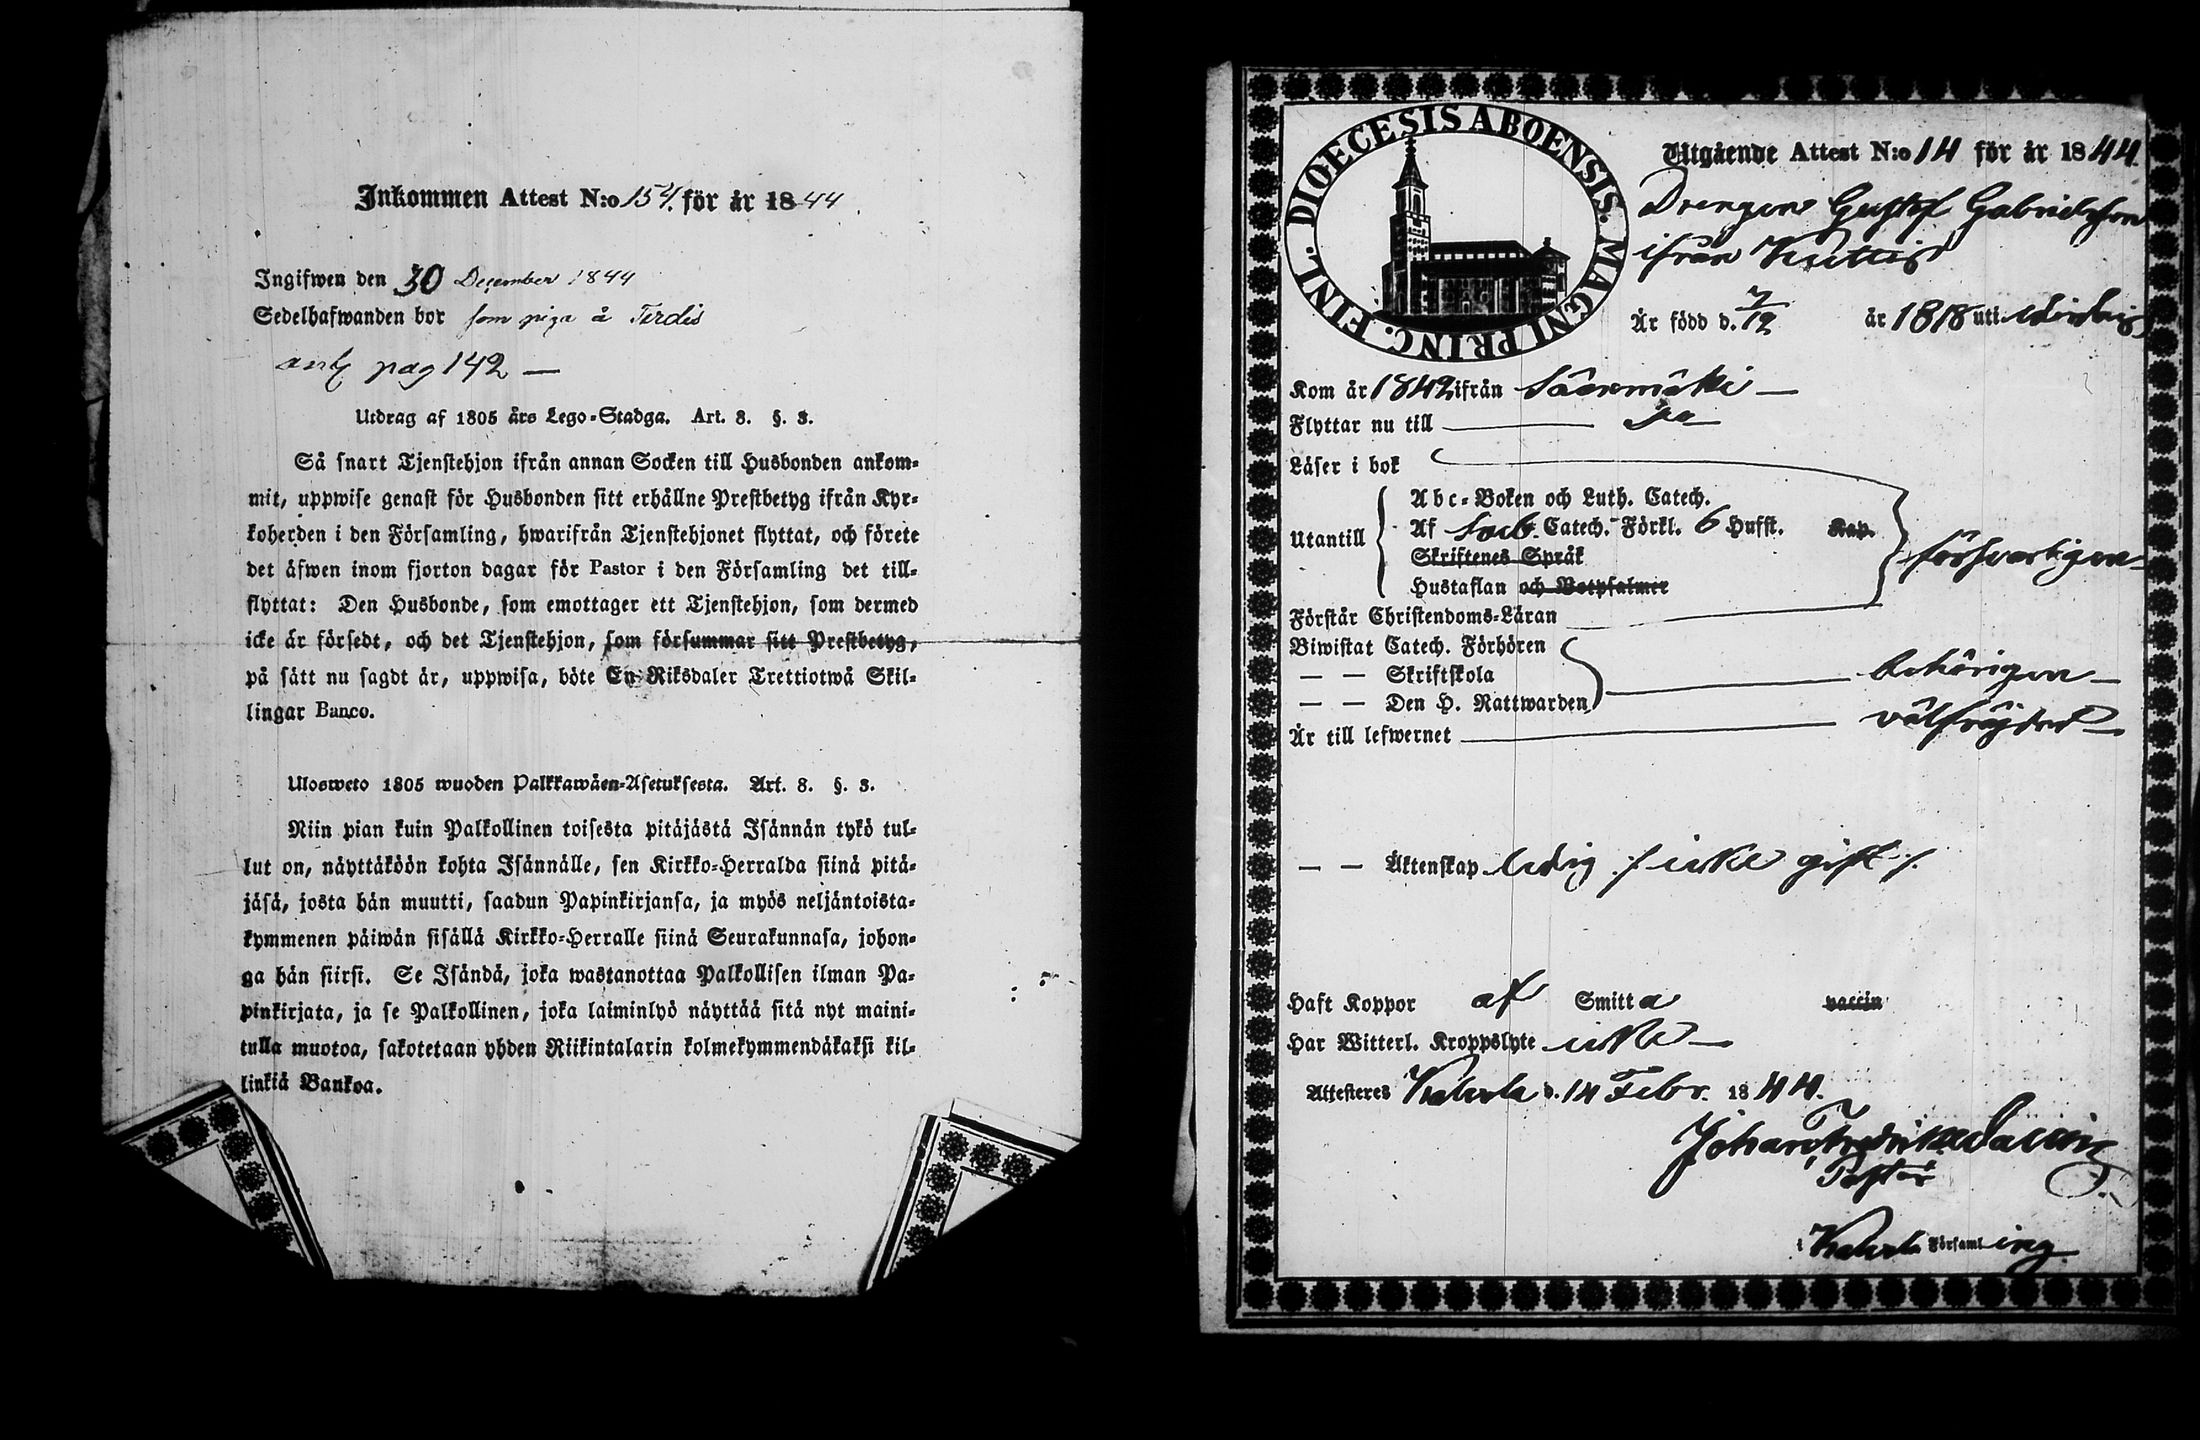 Inkommen Attest N:o 154. för år 1844.
Ingifwen den 30 December 1844
Sedelhafwanden bor som piga å Terdis
ant pag 142 —
Utdrag af 1805 års Lego-Stadga. Art. 8. §. 3.
Så snart Tjenstehjon ifrån annan Socken till Husbonden ankom-
mit, uppwise genast för Husbonden sitt erhållne Prestbetyg ifrån Kyr-
koherden i den Församling, hwarifrån Tjenstehjonet flyttat, och förete
det äfwen inom fjorton dagar för Pastor i den Församling det till-
flyttat: Den Husbonde, som emottager ett Tjenstehjon, som dermed
icke är försedt, och det Tjenstehjon, som försummar sitt Prestbetyg,
på sätt nu sagdt är, uppwisa, böte En Riksdaler Trettiotwå Skil-
lingar Banco.
Ulosweto 1805 wuoden Palkkawäen-Asetuksesta. Art. 8. §. 3.
Niin pian kuin Palkollinen toisesta pitäjästä Isännän tykö tul-
lut on, näyttäköön kohta Isännälle, sen Kirkko-Herralda siinä pitä-
jäsä, josta hän muutti, saadun Papinkirjansa, ja myös neljäntoista-
kymmenen päiwän sisällä Kirkko-Herralle siinä Seurakunnasa, johon-
ga hän siirsi. Se Isändä, joka wastanottaa Palkollisen ilman Pa-
pinkirjata, ja se Palkollinen, joka laiminlyö näyttää sitä nyt maini-
tulla muotoa, sakotetaan yhden Riikintalarin kolmekymmendäkaksi kil-
linkiä Bankoa.
DIOECESIS ABOENSIS. MAGNI PRINC. FINL.
Utgående Attest N:o 14 för år 1844.
Drengen Gustaf Gabrielsson
ifrån
Är född d. 7/12 år 1818 uti
Kom år 1842 ifrån Säaxmäki —
Flyttar nu till
Läser i bok
Abc-Boken och Luth. Catech.
Utantill Af Catech. Förkl. 6 Hufst. Kap. försvarligen
Skriftenes Språk
Hustaflan och Botpsalmer
Förstår Christendoms-Läran
Biwistat Catech. Förhören
— — Skriftskola behörigen —
— — Den H. Nattwarden
Är till lefwernet välfrejdad —
— — Äktenskap ledig /: icke gift :/.
Haft Koppor af Smitta vaccin
Har Witterl. Kroppslyte icke —
Attesteres d. 14 Febr. 1844.
Johan Fredrik
Pastor
i Församling